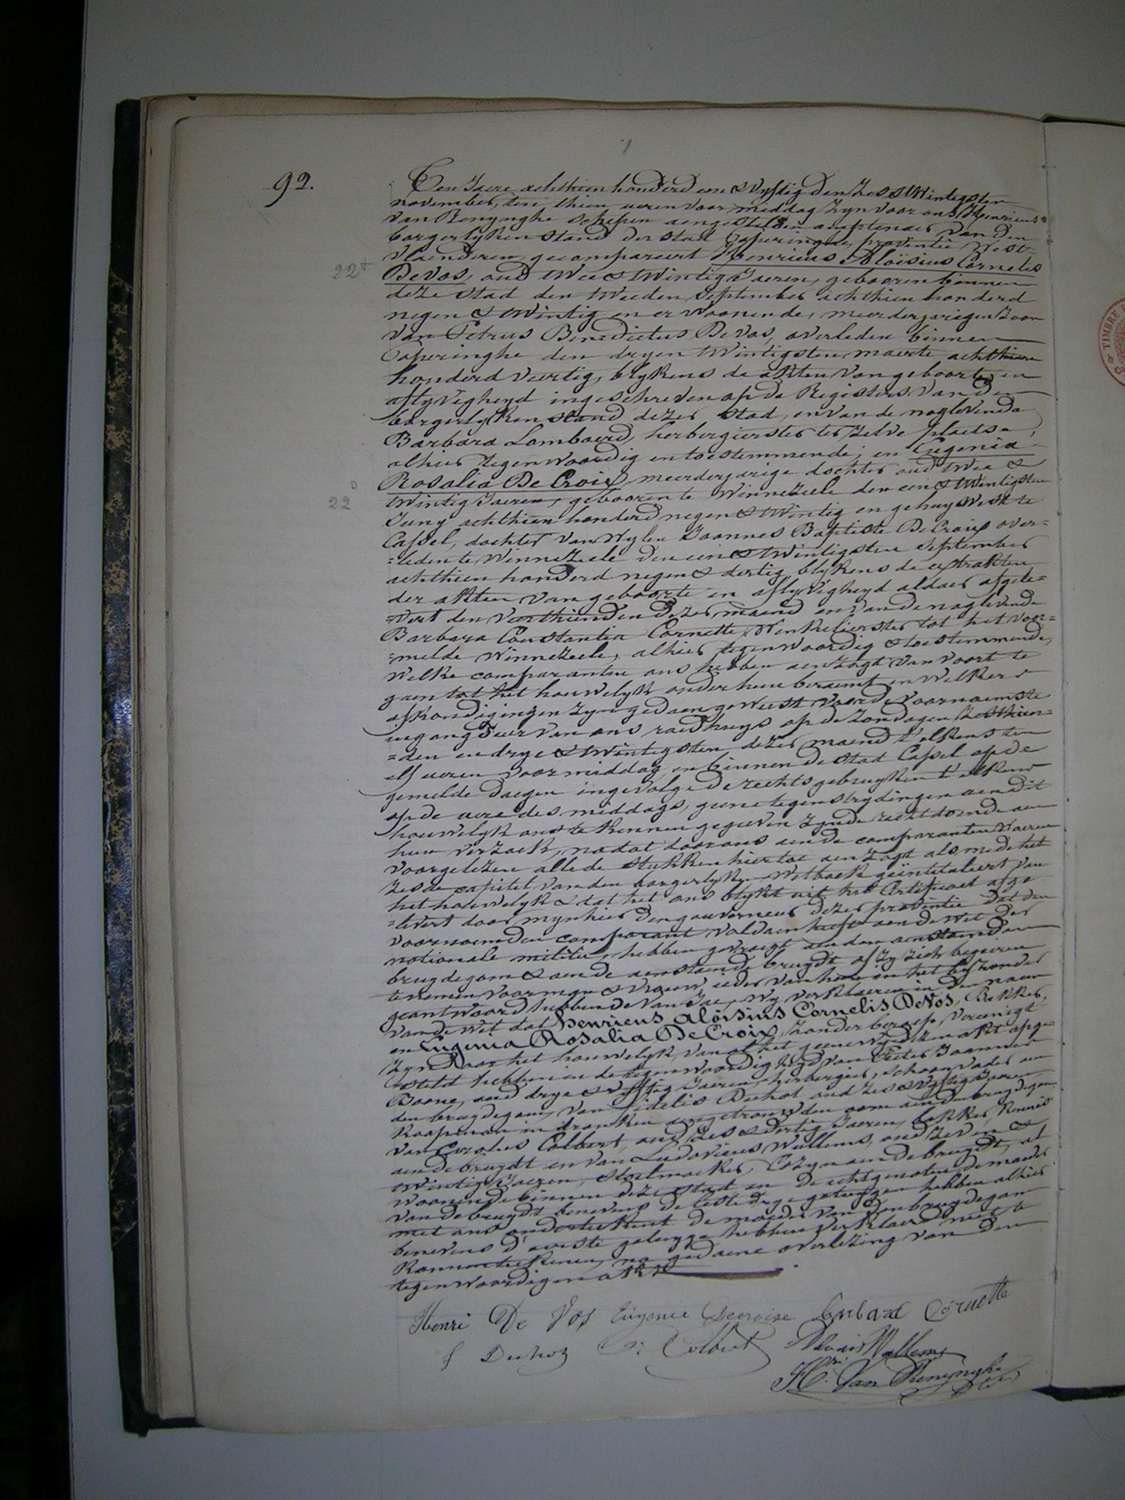 92.
Ten Jaere achthien honderd een & vyftig den zes & twintigsten
november, ten thien ueren voor middag zyn voor ons Henricus
van Renynghe schepen aengestelden amptenaer van den
borgerlyken stand der stad Poperinghe, provintie West-
vlaenderen gecompareert Henricus Aloïsius Cornelis
22+
De Vos, oud twee & twintig jaeren, geboren binnen
deze stad den tweeden september achthien honderd
negen & twintig en er woonende, meerderjarigen zoon
van Petrus Benedictus De Vos, overleden binnen
Poperinghe den dryen twintigsten maerte achthien
honderd veertig, blykens de akten van geboorte en
aflyvigheyd ingeschreven op de Registers van den
borgerlyken stand dezer stad, en van de naglevende
Barbara Lombaerd, herbergierster ter zelve plaetse,
alhier tegenwoordig en toestemmende; en Eugenia
22 D
Rosalia De Croix, meerderjarige dochter oud twee &
twintig jaeren, gebooren te Winnezeele den een & twintigsten
Juny achthien honderd negen & twintig en gehuysvest te
Cassel, dochter van wylen Joannes Baptiste De Croix over-
=leden te Winnezeele den een & twintigsten september
achthien honderd negen & dertig, blykens de extrakten
der akten van geboorte en aflyvigheyd aldaer afgele-
=vert den veerthienden dezer maend en van de naglevende
Barbara Constantia Cornette, Winkelierster tot het voor-
=melde Winnezeele, alhier tegenwoordig & toestemmende,
welke comparanten ons hebben aenzogt van voort te
gaen tot het houwelyk onder hun beraemt en welkers
afkondigingen zyn gedaen geweest voor de voornaemste
ingang deur van ons raedhuys op de zondagen zesthien-
=den en drye & twintigsten dezer maend t'elkens ten
elf ueren voormiddag, en binnen de stad Cassel op de
gemelde daegen ingevolge de rechtsgebruyken t'elkens
op de uere des middags, geene tegenstrydingen aen dit
houwelyk ons te kennen gegeven zynde rechtdoende aen
hun verzoek, na dat door ons aen de comparanten waeren
voorgelezen alle de stukken hier toe aenzogt als mede het
zesde capitel van den borgerlyken Wetboek geïntituleert van
het houwelyk & dat het ons blykt uit het Certificaet afge
=levert door mynheer den gouverneur dezer provintie dat den
voornoemden comparant voldaen heeft aen de wet der
nationale militie, hebben gevraegt aen den aenstaenden
brudegom & aen de aenstaende bruydt of zy zich begeiren
te nemen voor man & vrouw, ieder van hun in het byzonder
geantwoord hebbende van Jae, Wy verklaeren in den naem
van de Wet dat Henricus Aloïsius Cornelis De Vos, bakker,
en Eugenia Rosalia De Croix, zonder beroep, vereenigt
zyn door het houwelyk, van al het geene wy dezen akt opge
stelt hebben in de tegenwoordigheyd van Pieter Joannes
Boone, oud drye & vyftig jaeren, herbergier, schoonvader aen
den brugdegom, van Fidelis Duhot oud zes & vyftig jaeren
koopman in dranken aengetrouwden oom aen den brugdegom
van Carolus Colbert, oud zes & dertig jaeren, bakker, kennis
aen de bruydt en van Ludovicus Wullems, oud zeven &
twintig jaeren, stoelmaeker, Cozyn aen de bruydt, al
woonende binnen deze stad en de echtgenoten de moeder
van de bruydt benevens de letste drye getuigen hebben alhier
met ons onderteekent de moeder van den brugdegom
benevens d'eerste getuigge hebben verklaerd niet te
konnen teekenen, na gedaene overlezing van den
tegenwoordigen akt.
Henri De Vos Eugenie Decroixe Barbara Cornette
f Duhot C: Colbert Louis Wullems
Hri. Van Renynghe